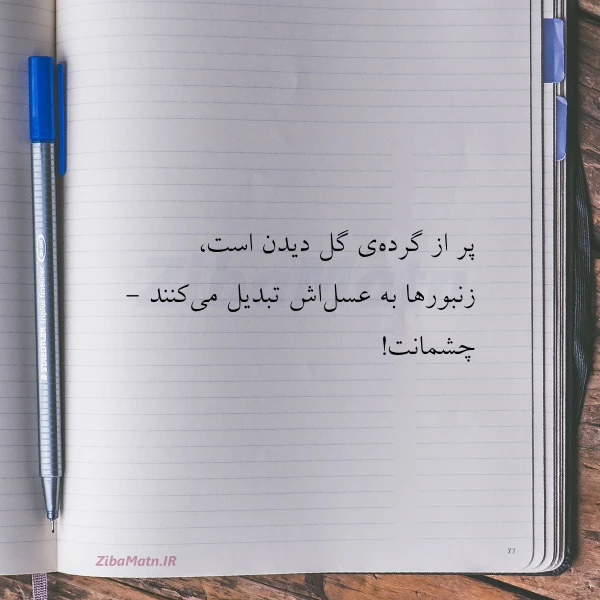 پر از گرده‌ی گل دیدن است،
زنبورها به عسل‌اش تبدیل می‌کنند –
چشمانت!
ZibaMatn.IR
77